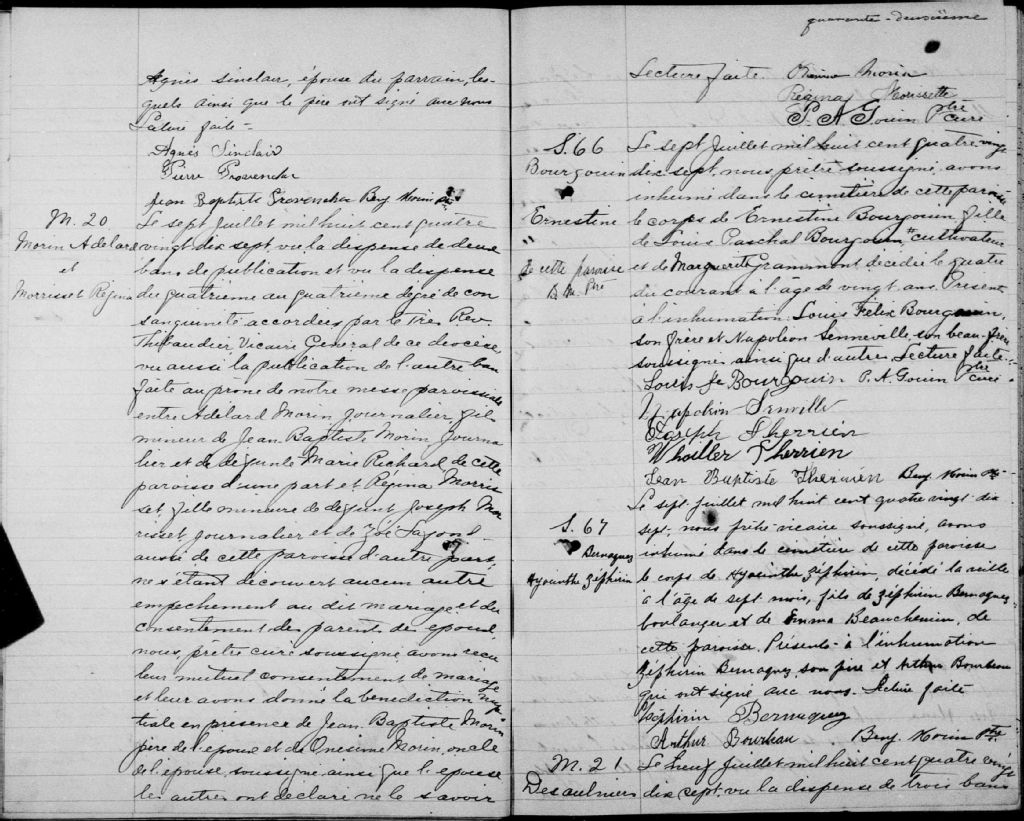 Agnès Sinclair, épouse du parrain, les-
quels ainsi que le père ont signé avec nous
Lecture faite -
Agnès Sinclair
Pierre Provencher
Jean Baptiste Provencher Benj. Morin Ptre
M. 20
Morin Adelard
et
Morrisset Régina
Le sept Juillet mil huit cent quatre
vingt dix sept vu la dispense de deux
bans de publication et vu la dispense
du quatrième au quatrième degré de con
sanguinité accordées par le Très Rev.
Thibaudier Vicaire Général de ce diocèse
vu aussi la publication de l'autre ban
faite au prone de notre messe paroissiale
entre Adelard Morin Journalier fils
mineur de Jean Baptiste Morin Journa
lier et de défunte Marie Richard de cette
paroisse d'une part et Régina Morris
set, fille mineure de défunt Joseph Mor
risset Journalier et de Zoé
aussi de cette paroisse d'autre part,
ne s'étant découvert aucun autre
empechement au dit mariage et du
consentement des parents des epoux,
nous, prêtre curé soussigné avons recu
leur mutuel consentement de mariage
et leur avons donné la benediction nup
tiale en presence de Jean Baptiste Morin
père de l'epoux et de Onesime Morin, oncle
de l'epouse, soussigné ainsi que l'epouse
les autres ont declaré ne le savoir
quarante-deuxième
Lecture faite. Onesime Morin
Régina Morissette
P. A. Gouin Ptre curé
S. 66
Bourgouin
Ernestine
de cette paroisse
B. M. Ptre
Le sept Juillet mil huit cent quatre vingt
dix sept, nous prêtre soussigné, avons
inhumé dans le cimetière de cette paroisse
le corps de Ernestine Bourgouin fille
de Louis Paschal Bourgouin # cultivateur
et de Marguerite Grammont décédée le quatre
du courant à l'age de vingt ans. Présents
à l'inhumation Louis Félix Bourgouin,
son frère et Napoléon Senneville, son beau-frère
soussignés ainsi que d'autres. Lecture faite.
Louis Fe Bourgouin P. A. Gouin Ptre curé
Napoléon Senville
Joseph Therrien
Therrien
Jean Baptiste Therrien Benj. Morin Ptre
S. 67
Bernaquez
Hyacinthe Zéphirin
Le sept Juillet mil huit cent quatre vingt dix
sept, nous prêtre vicaire soussigné, avons
inhumé dans le cimetière de cette paroisse
le corps de Hyacinthe Zéphirin, décédé la veille
à l'âge de sept mois, fils de Zéphirin Bernaquez
boulanger et de Emma Beauchemin, de
cette paroisse. Présents à l'inhumation
Zéphirin Bernaquez, son père et Arthur Bourbeau
qui ont signé avec nous. Lecture faite
Zéphirin Bernaquez
Arthur Bourbeau Benj. Morin Ptre
M. 21
Desaulniers
Le neuf Juillet mil huit cent quatre vingt
dix sept, vu la dispense de trois bans